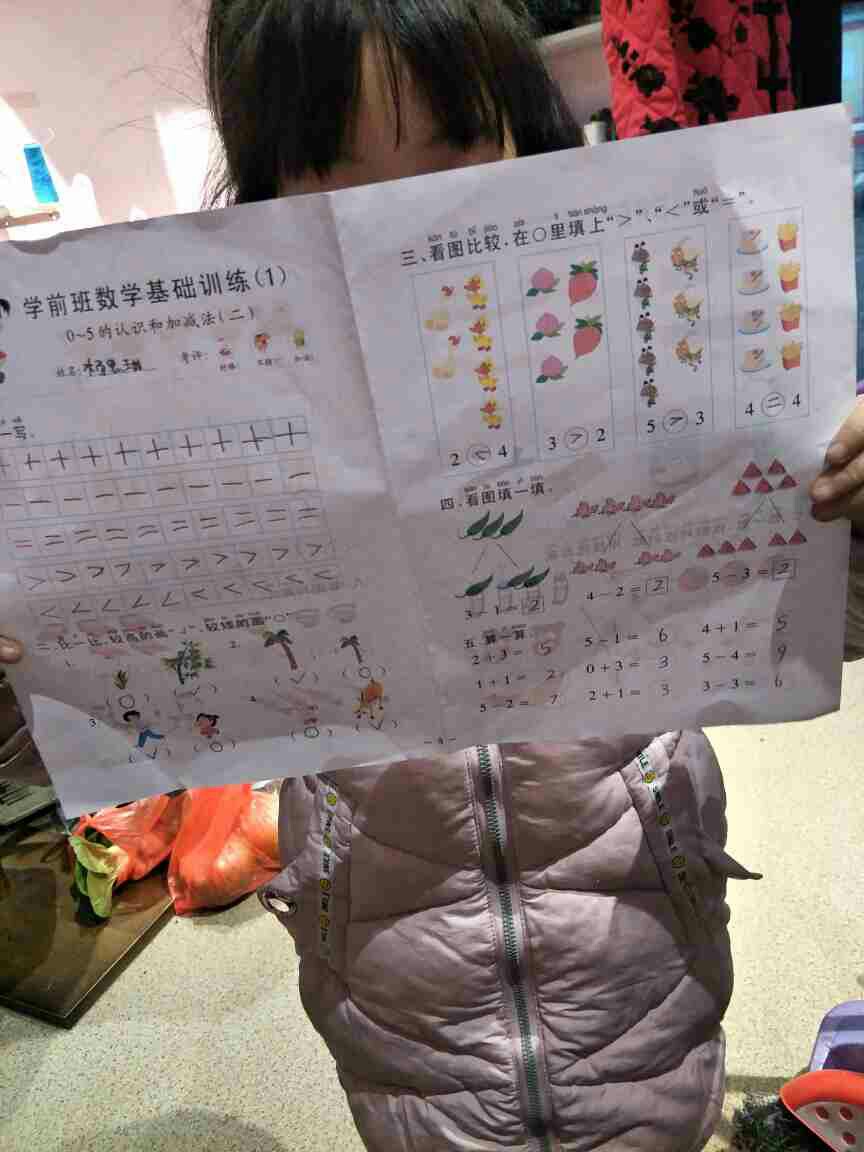 学前班数学基础训练(1)
0~5的认识和加减法(二)
姓名:
考评:
一写。
+ + + + + + + + + +
- - - - - - - - - -
= = = = = = = = = =
> > > > > > > > > >
< < < < < < < < < <
二、比一比,较高的画"√",较矮的画"○"
1.
2.
(○) (√) (√) (○)
3.
4.
(√) (○) (○) (√)
kàn tú bǐ jiào zài lǐ tián shàng huò
三、看图比较,在○里填上">"、"<"或"="。
2 < 4
3 > 2
5 > 3
4 = 4
四、看图填一填。
3-1=2
4-2=2
5-3=2
五、算一算。
2+3= 5
5-1= 6
4+1= 5
1+1= 2
0+3= 3
5-4= 9
5-2= 7
2+1= 3
3-3= 6
- 4 -
SMILE
SMILE